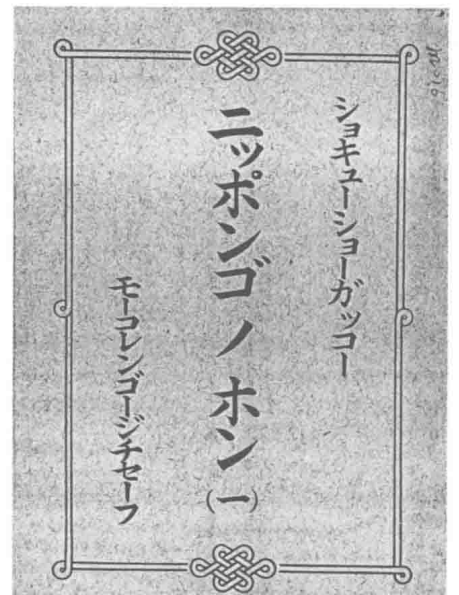 ショキューショーガッコー
ニッポンゴノホン(一)
モーコレンゴージチセーフ